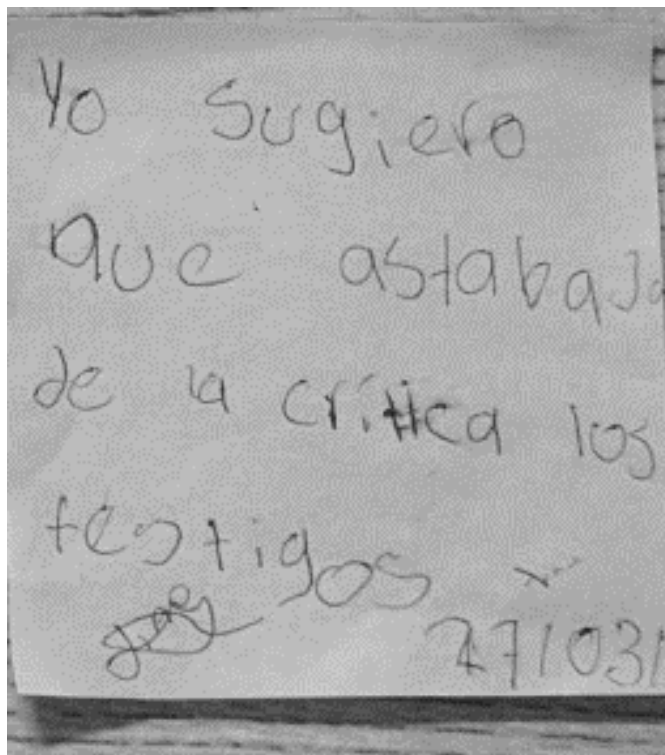 Yo sugiero
que astabaja
de la crítica los
testigos
27/03/